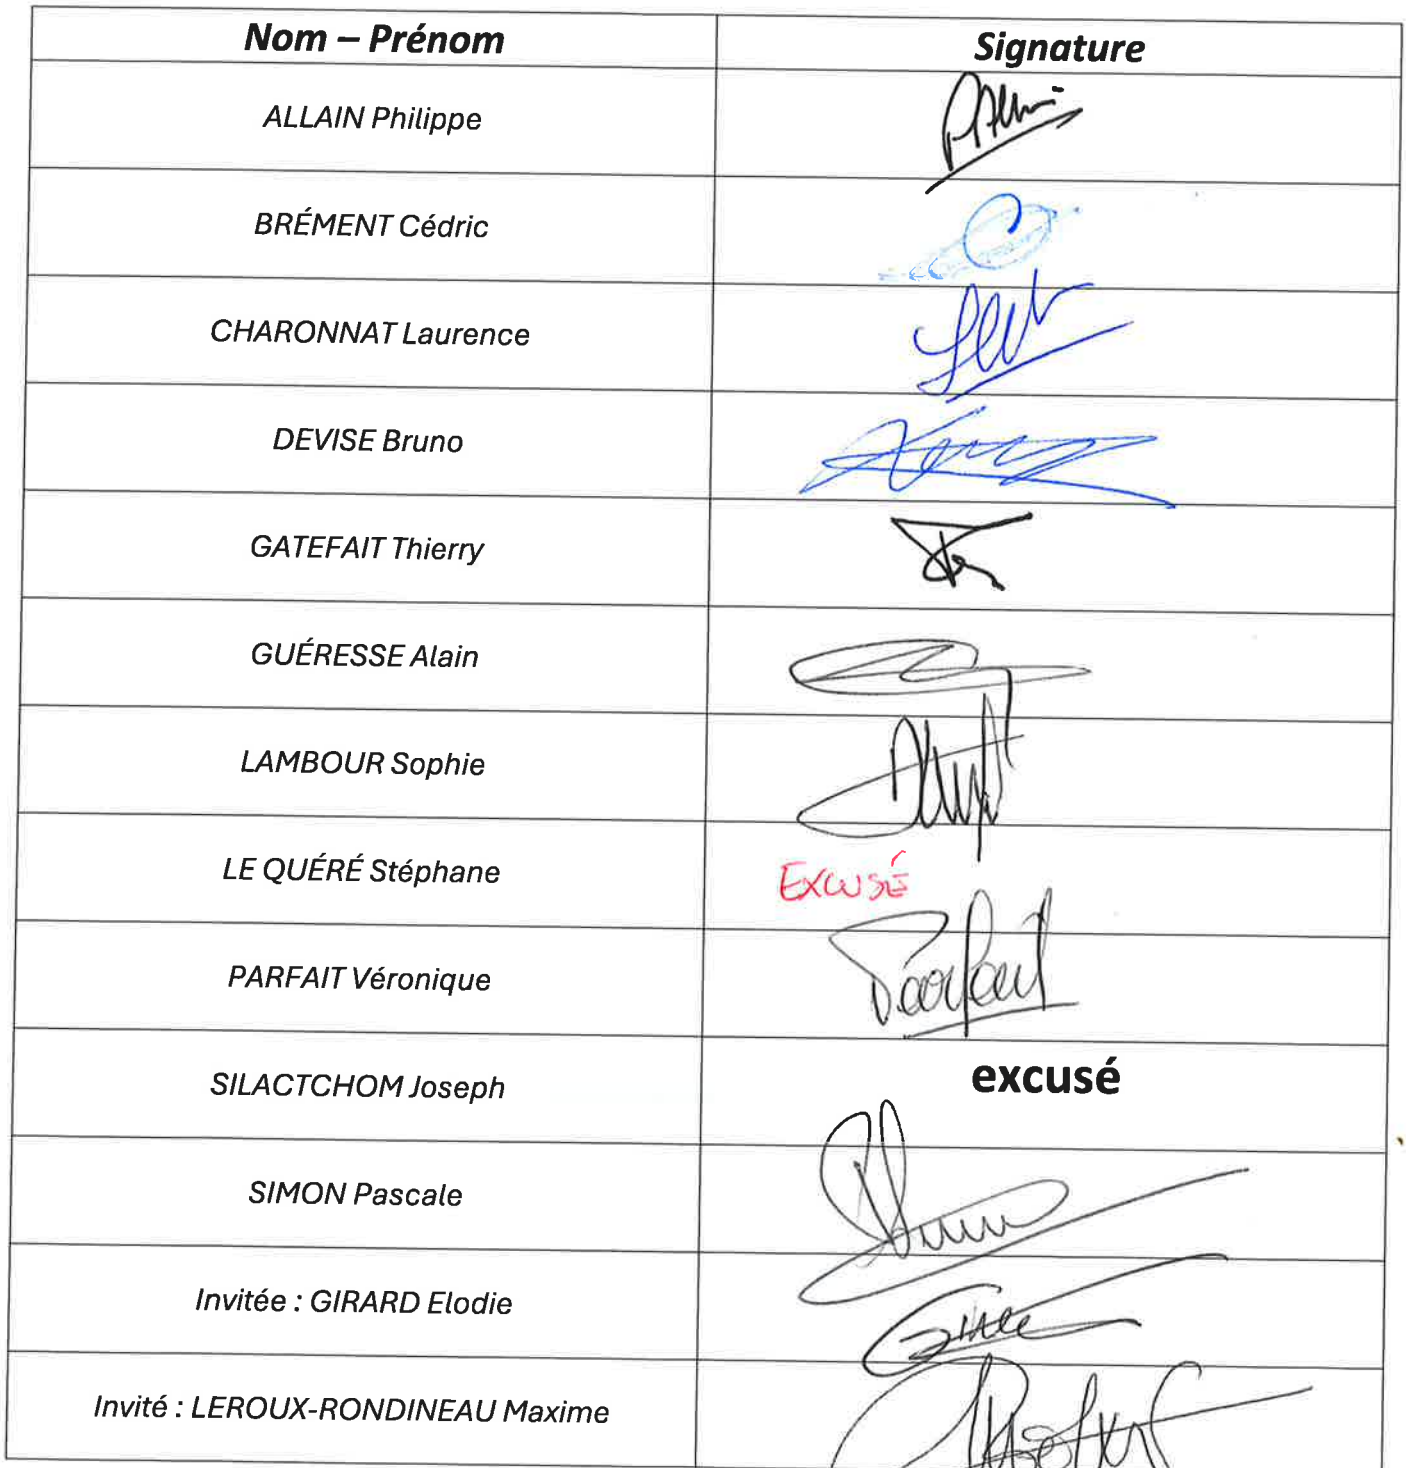 Nom – Prénom Signature
ALLAIN Philippe
BRÉMENT Cédric
CHARONNAT Laurence
DEVISE Bruno
GATEFAIT Thierry
GUÉRESSE Alain
LAMBOUR Sophie
LE QUÉRÉ Stéphane EXCUSÉ
PARFAIT Véronique Parfait
SILACTCHOM Joseph excusé
SIMON Pascale
Invitée : GIRARD Elodie
Invité : LEROUX-RONDINEAU Maxime